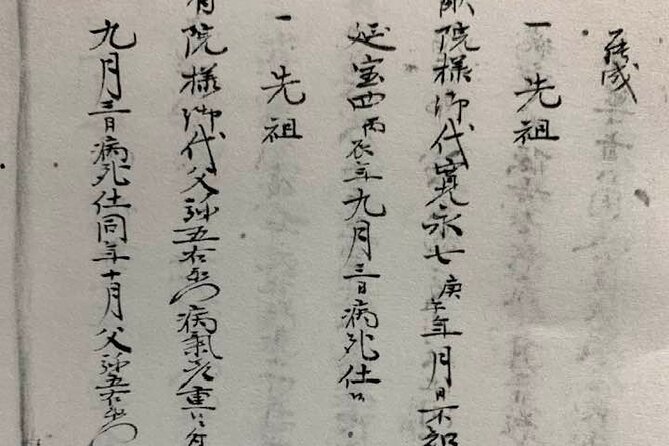 一 先祖
猷院様御代寛永七庚午年月日不知
延宝四丙辰年九月三日病死仕候
一 先祖
有院様御代父弥五右衛門病氣差重ニ付
九月三日病死仕同年十月父弥五右衛門